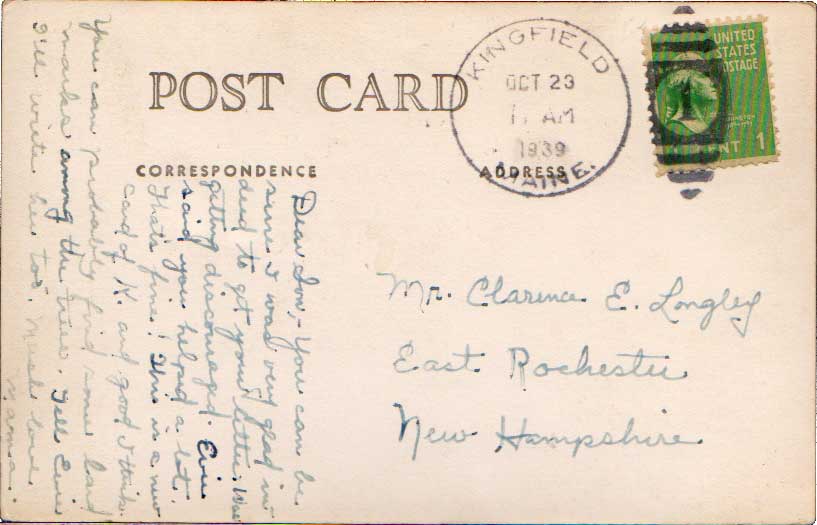 POST CARD
CORRESPONDENCE
ADDRESS
KINGFIELD
OCT 23
11 AM
1939
MAINE.
UNITED
STATES
POSTAGE
1
CENT 1
Mr. Clarence E. Longley
East Rochester
New Hampshire
Dear Son,- You can be
sure I was very glad in-
deed to get your letter. Was
getting discouraged. Evie
said you helped a lot.
That's fine! This is a new
card of K. and good I think.
You can probably find some land
marks among the trees. Tell Evie
I'll write her too. Much love
Mama.